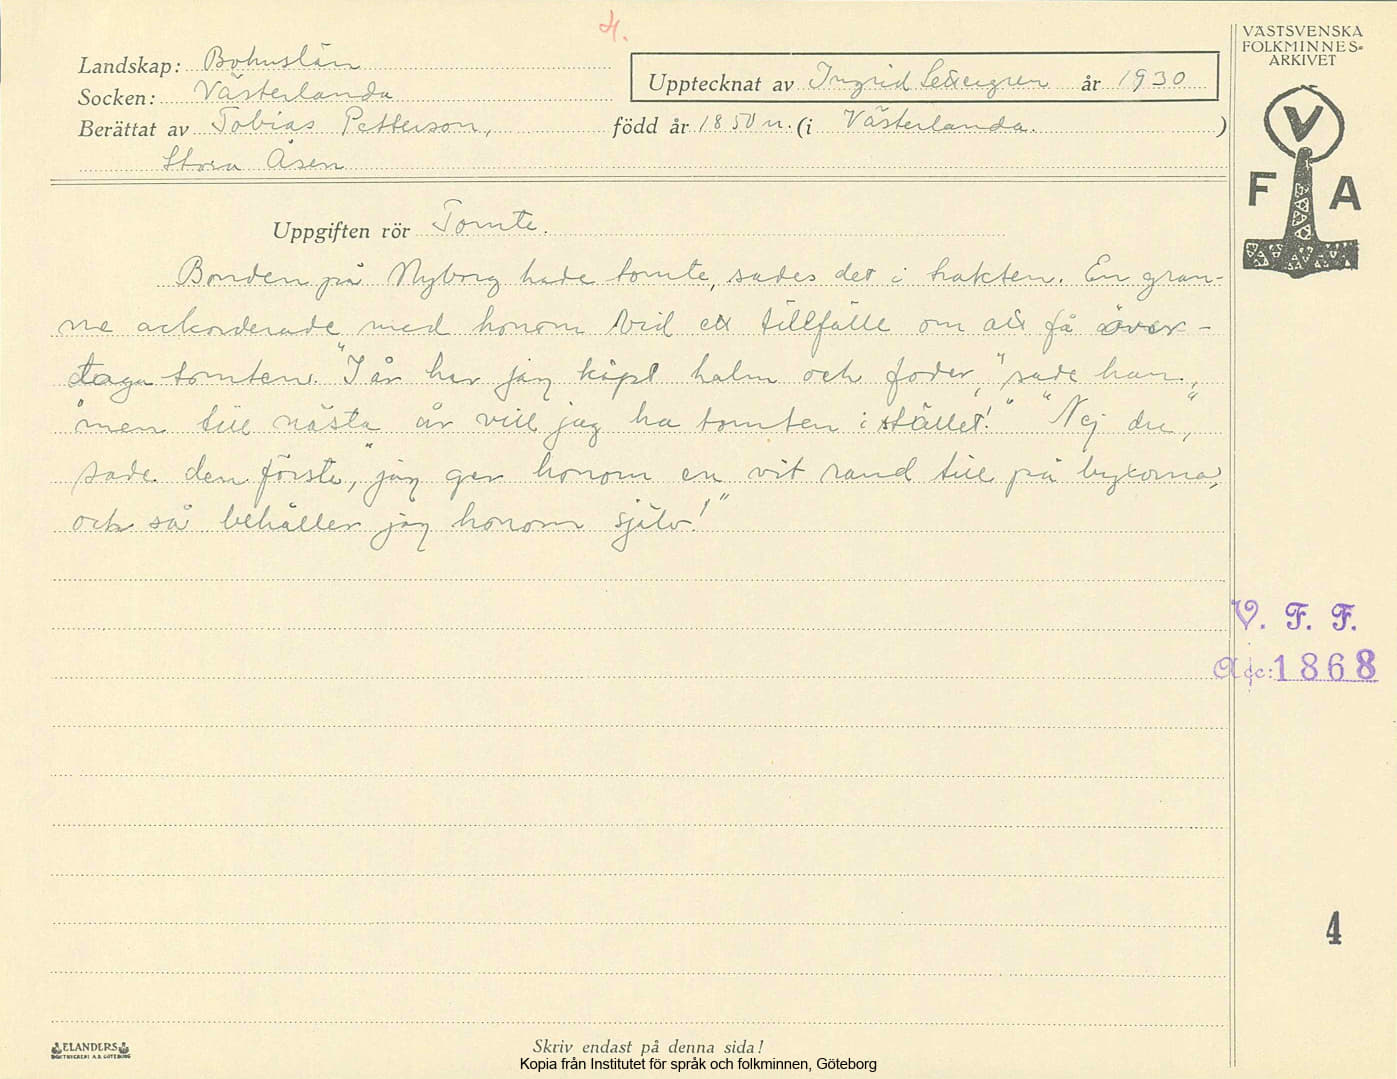 4.
VÄSTSVENSKA
FOLKMINNES-
ARKIVET
Landskap: Bohuslän
Upptecknat av Ingrid år 1930
Socken: Västerlanda
Berättat av Tobias Petterson, född år 1850 (i Västerlanda. )
Stora Åsen
V
F A
Uppgiften rör Tomte.
Bonden på Nyborg hade tomte, sades det i trakten. En gran-
ne ackorderade med honom vid ett tillfälle om att få över-
taga tomten. "I år har jag köpt halm och foder," sade han,
"men till nästa år vill jag ha tomten i stället!" "Nej du,"
sade den förste, "jag ger honom en vit rand till på byxorna,
och så behåller jag honom själv!"
V. F. F.
Acc: 1868
4
ELANDERS
BOKTRYCKERI A.B. GÖTEBORG
Skriv endast på denna sida!
Kopia från Institutet för språk och folkminnen, Göteborg